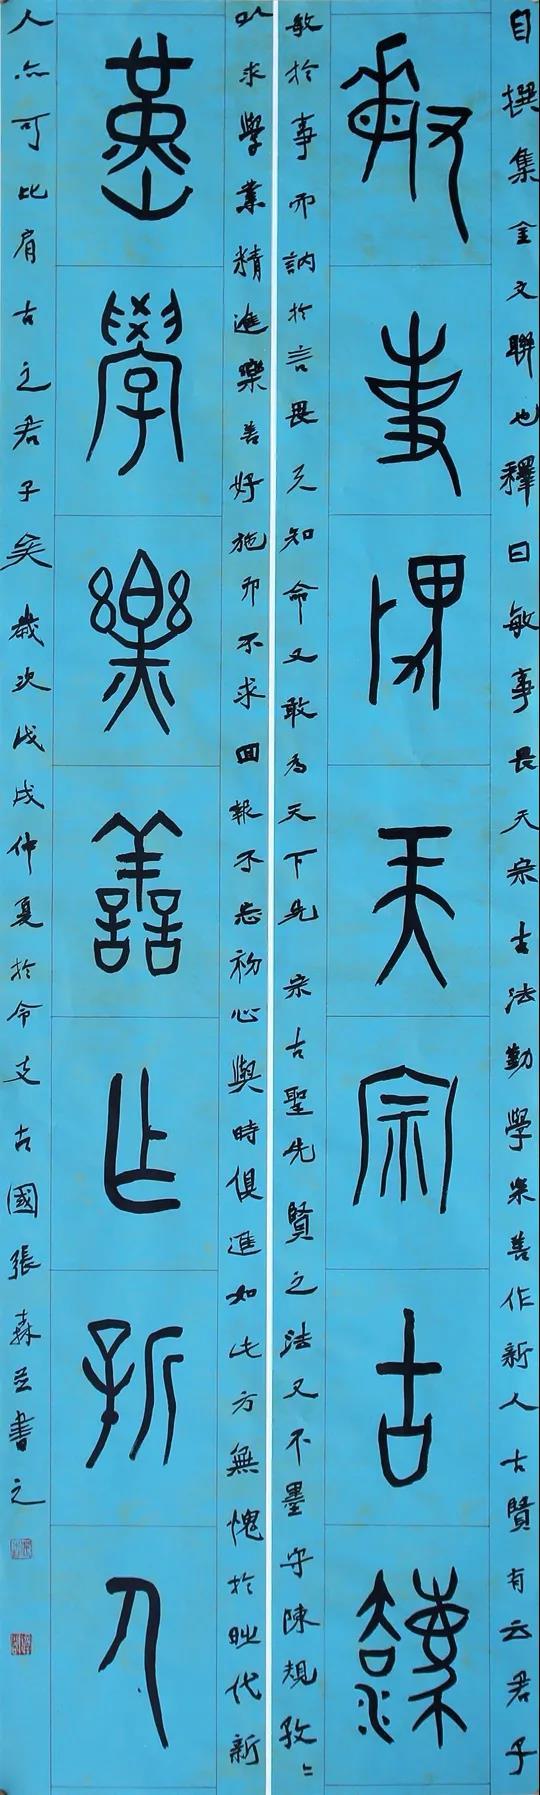 敏事畏天宗古法
勤學樂善作新人
自撰集金文聯也釋曰敏事畏天宗古法勤學樂善作新人古賢有云君子
敏於事而訥於言畏天知命又敢為天下先宗古聖先賢之法又不墨守陳規孜〻
以求學業精進樂善好施而不求回報不忘初心與時俱進如此方無愧於時代新
人亦可比肩古之君子矣歲次戊戌仲夏於令支古國張森並書之